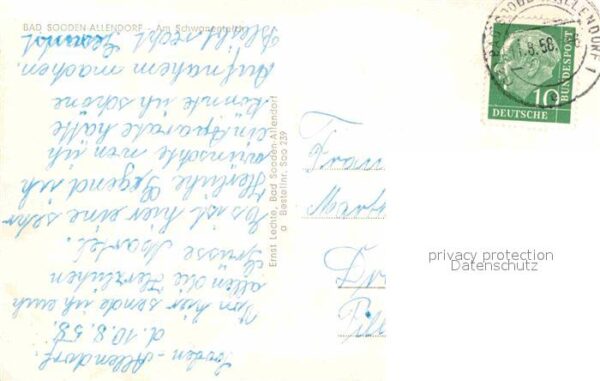 BAD SOODEN-ALLENDORF - Am Schwanenteich
Sooden-Allendorf.
d. 10.8.58.
Von hier sende ich euch
allen die Herzlichen
Grüsse
Es ist hier eine sehr
Herliche Gegend ich
wünschte mon ich
ein Aparate hatte
könnte ich schöne
Aufnahem machen.
Bleibt recht Gesund
Ernst Lechte, Bad Sooden-Allendorf
a Bestellnr. Soo 239
BAD SOODEN-ALLENDORF 1
.8.58
10
DEUTSCHE
BUNDESPOST
privacy protection
Datenschutz